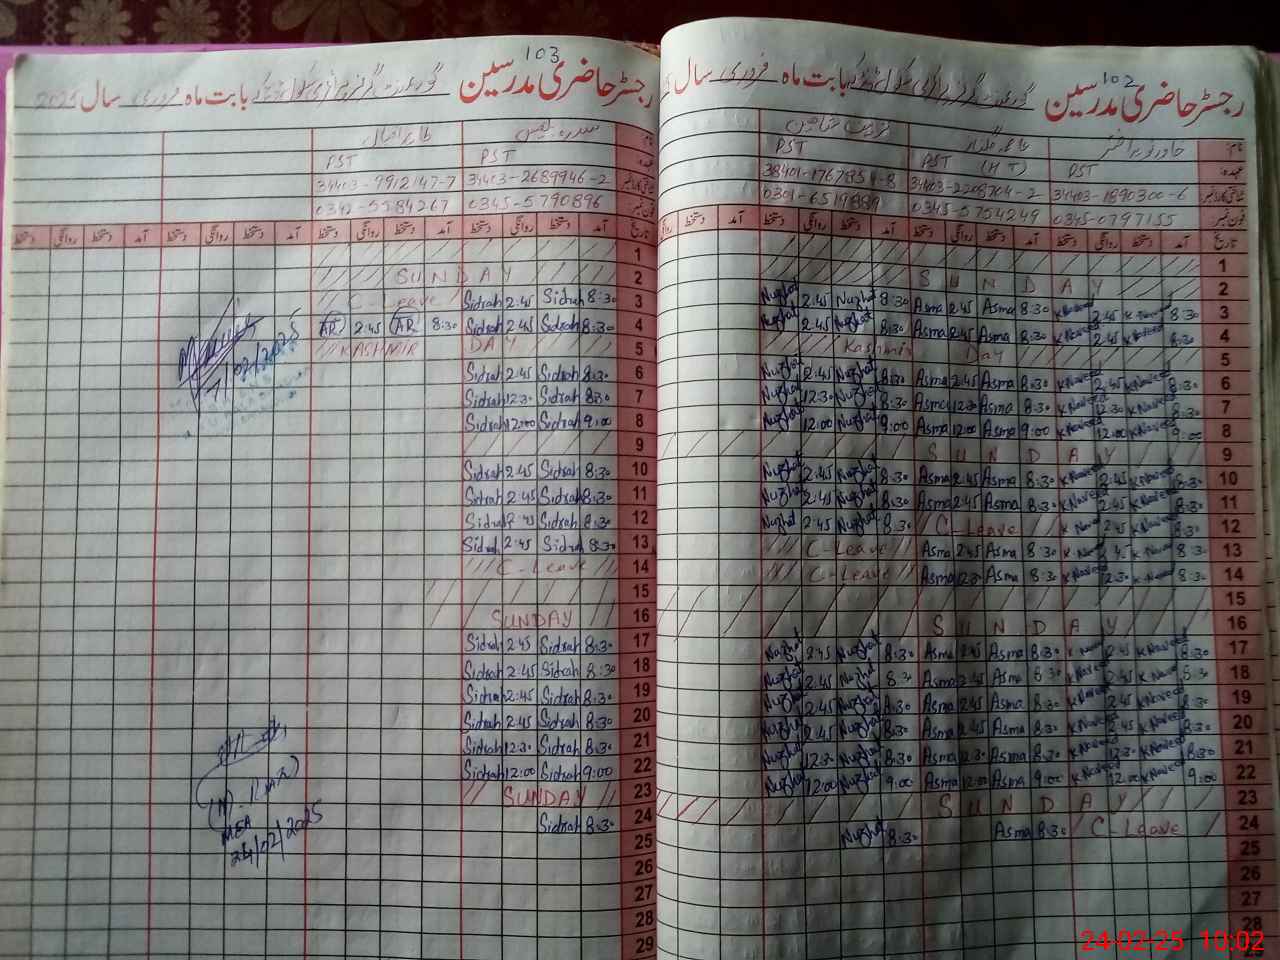 102
رجسٹر حاضری مدرسین بابت ماہ فروری سال
نام
PST PST (HT) PST
38401-1767854-8 34403-2208704-2 34403-1890300-6
0301-6519889 0345-5754249 0345-0797155
تاریخ آمد دستخط روانگی دستخط آمد دستخط روانگی دستخط آمد دستخط روانگی دستخط
1
SUNDAY 2
Nuzhat 2:45 Nuzhat 8:30 Asma 2:45 Asma 8:30 K Naveed 2:45 K Naveed 8:30 3
Nuzhat 2:45 Nuzhat 8:30 Asma 2:45 Asma 8:30 K Naveed 2:45 K Naveed 8:30 4
Kashmir Day 5
Nuzhat 2:45 Nuzhat 8:30 Asma 2:45 Asma 8:30 K Naveed 2:45 K Naveed 8:30 6
Nuzhat 12:30 Nuzhat 8:30 Asma 12:30 Asma 8:30 K Naveed 12:30 K Naveed 8:30 7
Nuzhat 12:00 Nuzhat 9:00 Asma 12:00 Asma 9:00 K Naveed 12:00 K Naveed 9:00 8
SUNDAY 9
Nuzhat 2:45 Nuzhat 8:30 Asma 2:45 Asma 8:30 K Naveed 2:45 K Naveed 8:30 10
Nuzhat 2:45 Nuzhat 8:30 Asma 2:45 Asma 8:30 K Naveed 2:45 K Naveed 8:30 11
Nuzhat 2:45 Nuzhat 8:30 C-Leave K Naveed 2:45 K Naveed 8:30 12
C-Leave Asma 2:45 Asma 8:30 K Naveed K Naveed 8:30 13
C-Leave Asma 12:30 Asma 8:30 K Naveed 12:30 K Naveed 8:30 14
15
SUNDAY 16
Nuzhat 2:45 Nuzhat 8:30 Asma 2:45 Asma 8:30 K Naveed 2:45 K Naveed 8:30 17
Nuzhat 2:45 Nuzhat 8:30 Asma 2:45 Asma 8:30 K Naveed 2:45 K Naveed 8:30 18
Nuzhat 2:45 Nuzhat 8:30 Asma 2:45 Asma 8:30 K Naveed 2:45 K Naveed 8:30 19
Nuzhat 2:45 Nuzhat 8:30 Asma 2:45 Asma 8:30 K Naveed 2:45 K Naveed 8:30 20
Nuzhat 12:30 Nuzhat 8:30 Asma 12:30 Asma 8:30 K Naveed 12:30 K Naveed 8:30 21
Nuzhat 12:00 Nuzhat 9:00 Asma 12:00 Asma 9:00 K Naveed 12:00 K Naveed 9:00 22
SUNDAY 23
Nuzhat 8:30 Asma 8:30 C-Leave 24
25
26
27
28
103
رجسٹر حاضری مدرسین بابت ماہ فروری سال 2025
نام
PST PST
34403-9912147-7 34403-2689946-2
0342-5584267 0345-5790896
تاریخ آمد دستخط روانگی دستخط آمد دستخط روانگی دستخط آمد دستخط روانگی دستخط آمد دستخط روانگی دستخط
1
SUNDAY 2
C-Leave Sidrah 2:45 Sidrah 8:30 3
AR 2:45 AR 8:30 Sidrah 2:45 Sidrah 8:30 4
KASHMIR DAY 5
Sidrah 2:45 Sidrah 8:30 6
Sidrah 12:30 Sidrah 8:30 7
Sidrah 12:00 Sidrah 9:00 8
9
Sidrah 2:45 Sidrah 8:30 10
Sidrah 2:45 Sidrah 8:30 11
Sidrah 2:45 Sidrah 8:30 12
Sidrah 2:45 Sidrah 8:30 13
C-Leave 14
15
SUNDAY 16
Sidrah 2:45 Sidrah 8:30 17
Sidrah 2:45 Sidrah 8:30 18
Sidrah 2:45 Sidrah 8:30 19
Sidrah 2:45 Sidrah 8:30 20
Sidrah 12:30 Sidrah 8:30 21
Sidrah 12:00 Sidrah 9:00 22
SUNDAY 23
Sidrah 8:30 24
25
26
27
28
29
MEA
24/02/2025
24-02-25 10:02